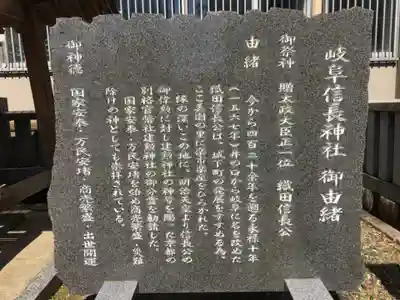 岐阜信長神社 御由緒
御祭神 贈太政大臣正一位 織田信長公
由緒
今から四百三十余年を遡る永禄十年
(一五六七年)井ノ口から岐阜に名を改めた
織田信長公は、城下町の発展をすすめる為、
ここ美園の里に楽市楽座をひらかれた。
縁の深いこの地に、明治天皇より信長公の
御偉勲に対し建勲神社の神号を賜った京都の
別格官幣社建勲神社の御分霊を勧請した。
国家安泰・万民安堵を始め商売繁盛・災難
除けの神としても崇拝されている。
御神徳 国家安泰・万民安堵・商売繁盛・出世開運